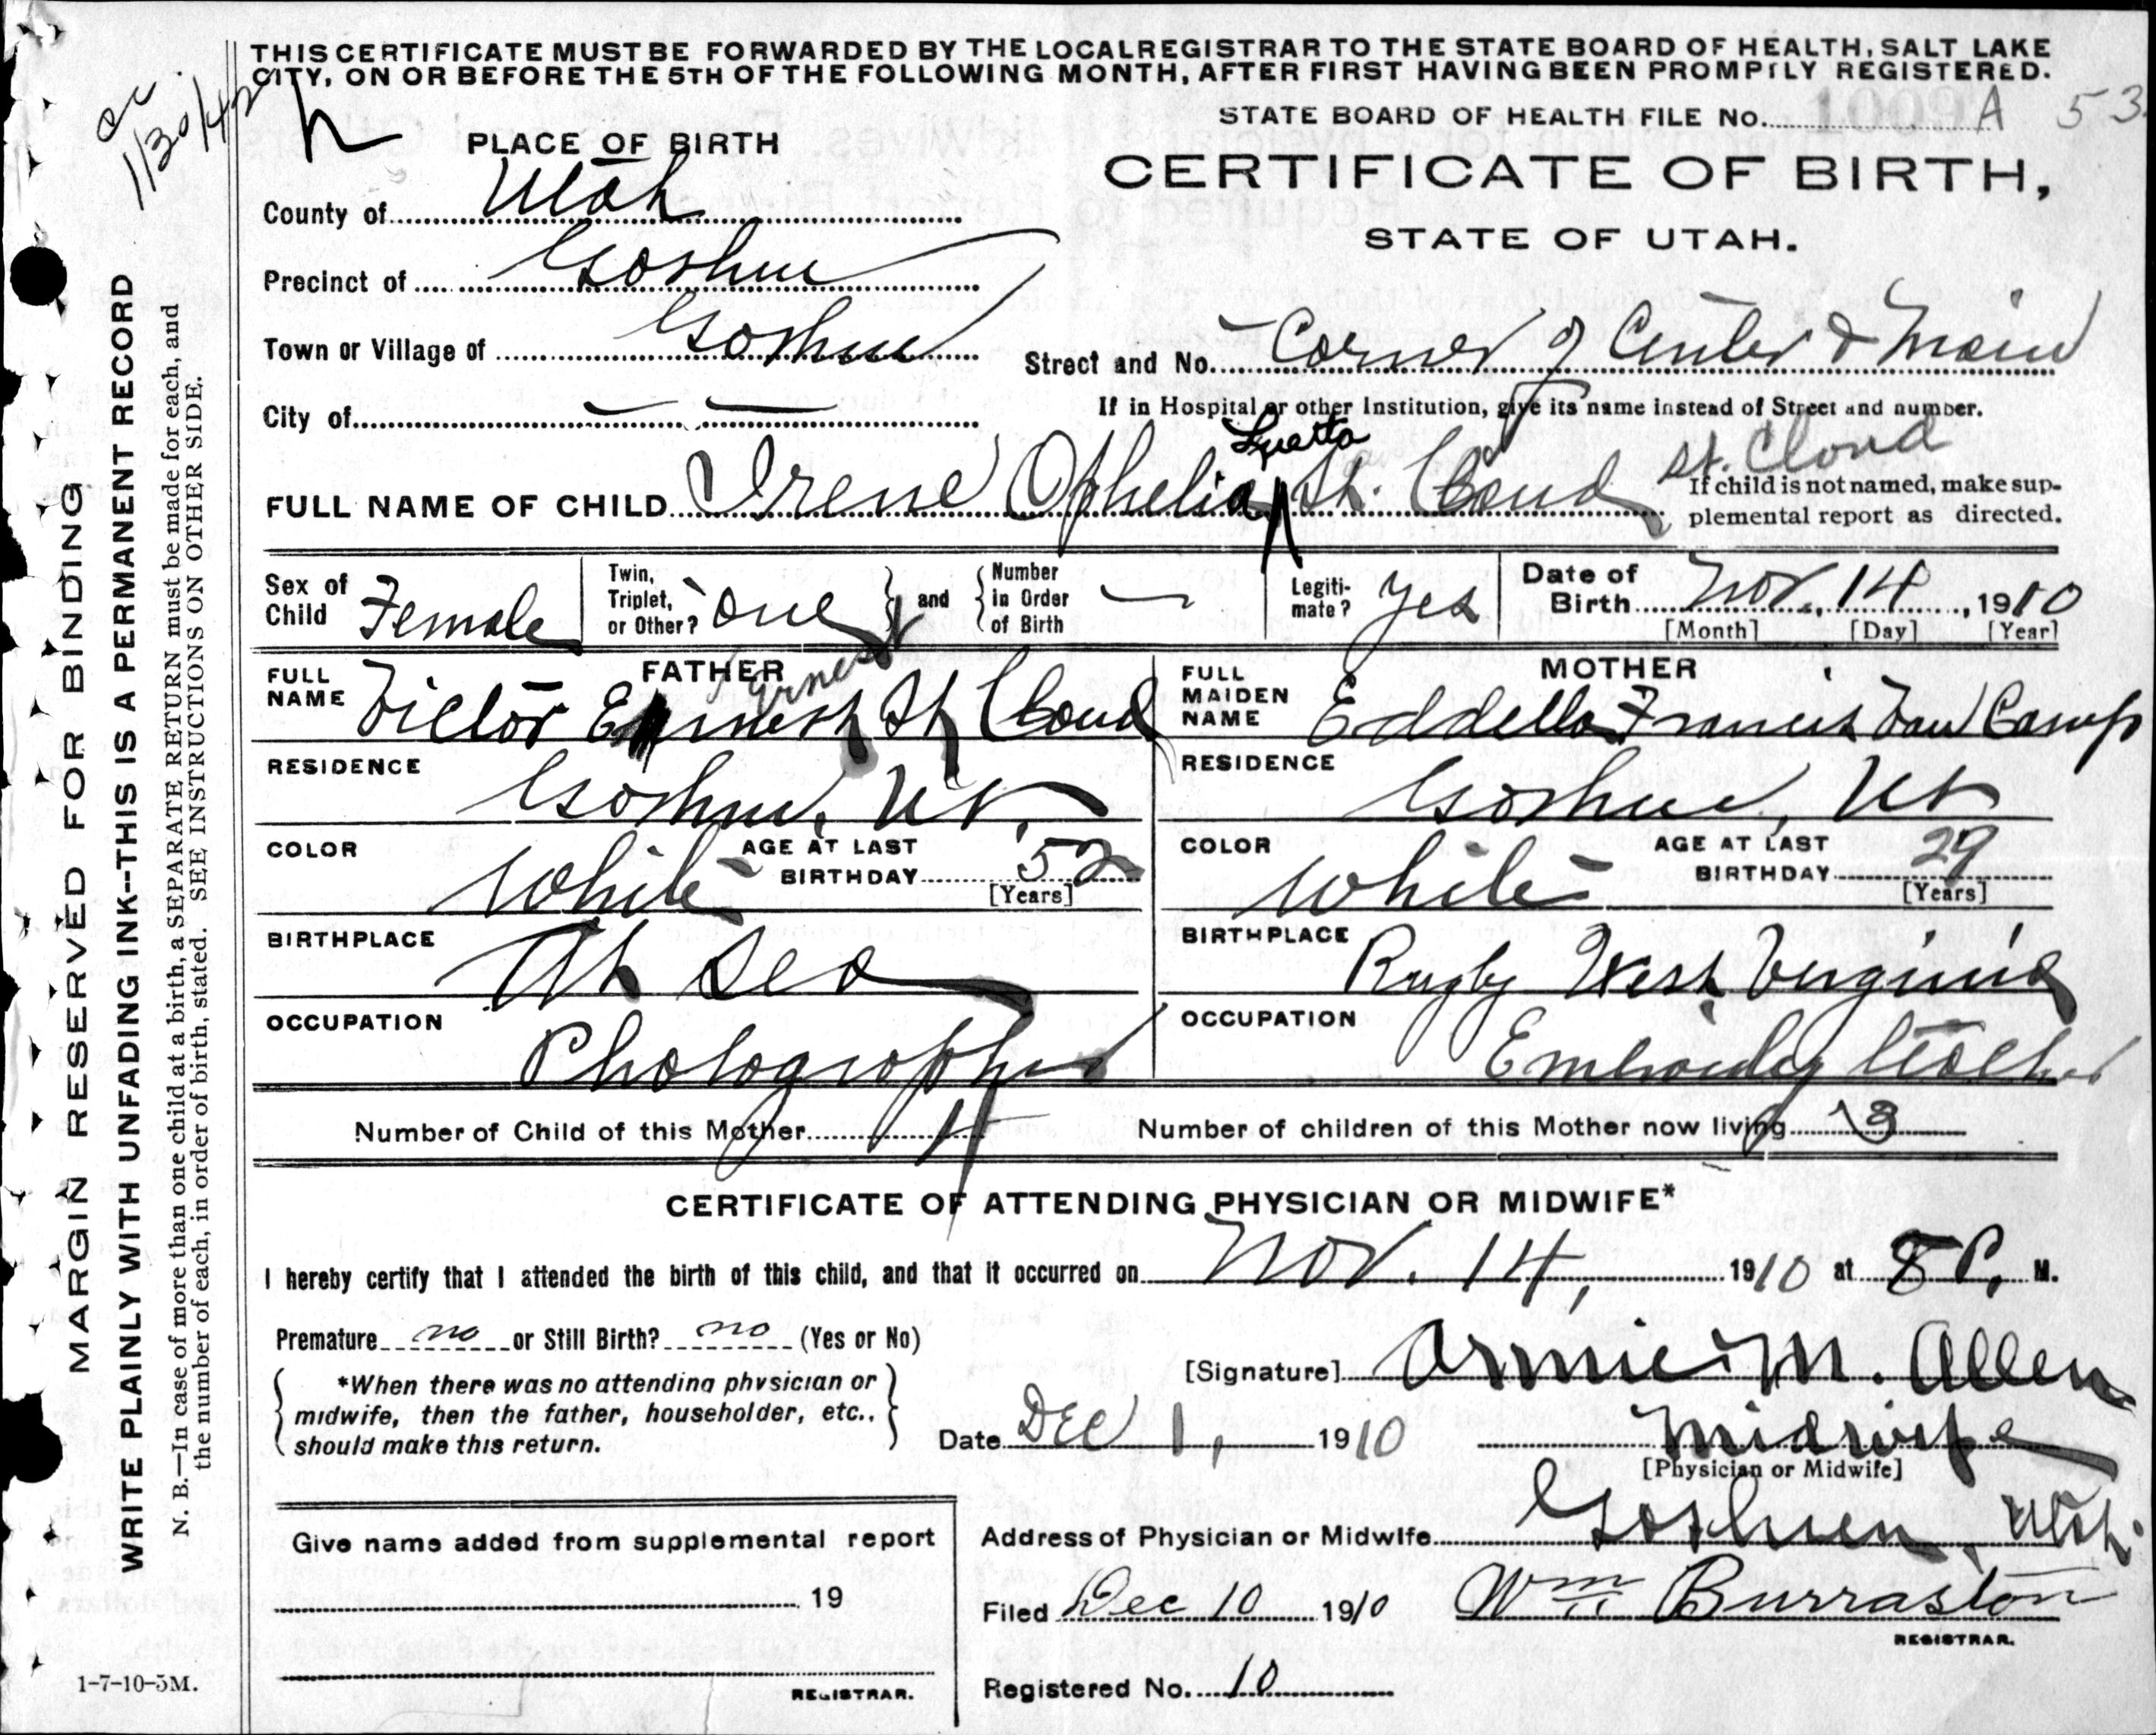 THIS CERTIFICATE MUST BE FORWARDED BY THE LOCAL REGISTRAR TO THE STATE BOARD OF HEALTH, SALT LAKE
CITY, ON OR BEFORE THE 5TH OF THE FOLLOWING MONTH, AFTER FIRST HAVING BEEN PROMPTLY REGISTERED.
1/30/42
STATE BOARD OF HEALTH FILE NO. A 53
PLACE OF BIRTH
CERTIFICATE OF BIRTH,
STATE OF UTAH.
County of Utah
Precinct of Goshen
Town or Village of Goshen
Street and No. Corner of Center & Main
City of — —
If in Hospital or other Institution, give its name instead of Street and number.
Luetta
St. Cloud
FULL NAME OF CHILD Irene Ophelia St. Cloud
If child is not named, make sup-
plemental report as directed.
Sex of Child Female
Twin, Triplet, or Other? one and Number in Order of Birth —
Legiti-mate? yes
Date of Birth Nov. 14, 1910
[Month] [Day] [Year]
FATHER
Ernest
FULL NAME Victor Ernest St Cloud
RESIDENCE Goshen, Ut.
COLOR White AGE AT LAST BIRTHDAY 52
[Years]
BIRTHPLACE At Sea
OCCUPATION Photographer
MOTHER
FULL MAIDEN NAME Eddella Francis Van Camp
RESIDENCE Goshen, Ut
COLOR White AGE AT LAST BIRTHDAY 29
[Years]
BIRTHPLACE Rugby West Virginia
OCCUPATION Embroidry
Number of Child of this Mother
Number of children of this Mother now living 3
CERTIFICATE OF ATTENDING PHYSICIAN OR MIDWIFE*
I hereby certify that I attended the birth of this child, and that it occurred on Nov. 14, 1910 at 8 P. M.
Premature no or Still Birth? no (Yes or No)
*When there was no attending physician or
midwife, then the father, householder, etc.,
should make this return.
[Signature] M. Allen
Date Dec 1, 1910
Midwife
[Physician or Midwife]
Give name added from supplemental report
19
REGISTRAR.
Address of Physician or Midwife Goshen, Utah.
Filed Dec 10 1910 Wm Burraston
REGISTRAR.
Registered No. 10
MARGIN RESERVED FOR BINDING
WRITE PLAINLY WITH UNFADING INK--THIS IS A PERMANENT RECORD
N. B.—In case of more than one child at a birth, a SEPARATE RETURN must be made for each, and
the number of each, in order of birth, stated. SEE INSTRUCTIONS ON OTHER SIDE.
1-7-10-5M.